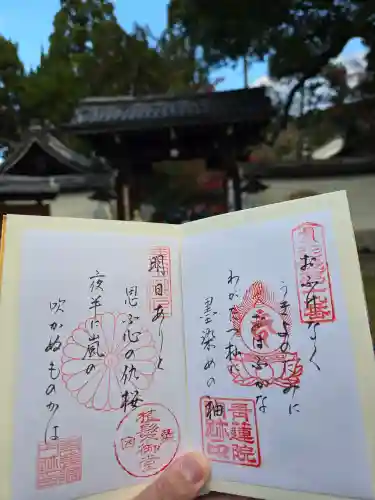 おふけなく
うき世のたみに
おほふかな
わがたつ杣に
墨染めの
袖
青蓮院
明日ありと
思ふ心の仇桜
夜半に嵐の
吹かぬものかは
植髪御堂